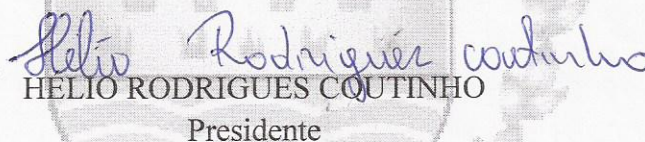 Helio Rodrigues coutinho
HELIO RODRIGUES COUTINHO
Presidente